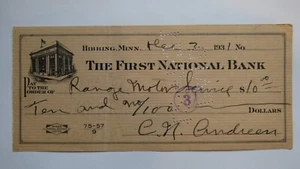 HIBBING, MINN. Dec 3 1931 No
THE FIRST NATIONAL BANK
PAY TO THE ORDER OF Range Motor Service $10 00
Ten and no/100 DOLLARS
3
75-57
9
C. N. Andreen